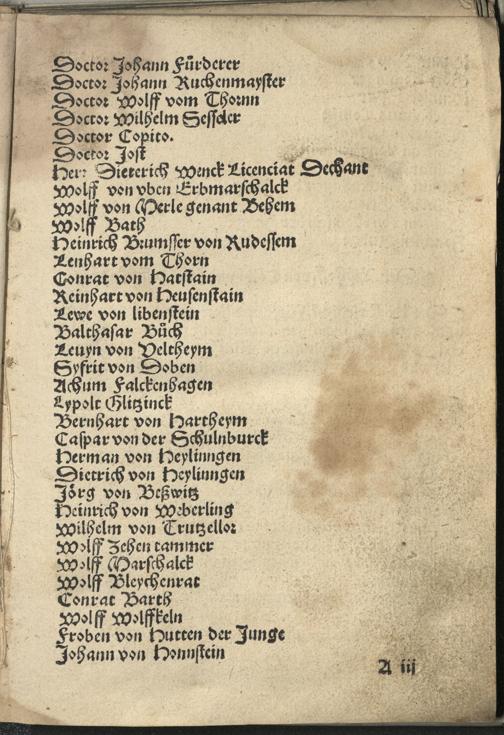 Doctor Johann Fürderer
Doctor Johann Ruchenmayster
Doctor Wolff vom Thornn
Doctor Wilhelm Sessder
Doctor Copito.
Doctor Jost
Herr Dieterich Wenck Licenciat Dechant
Wolff von vben Erbmarschalck
Wolff von Merle genant Behem
Wolff Bath
Heinrich Brumsser von Rudessem
Lenhart vom Thorn
Conrat von Hatstain
Reinhart von Heusenstain
Lewe von libenstein
Balthasar Bůch
Leuyn von Veltheym
Syfrit von Doben
Achum Falckenhagen
Lypolt Glitzinck
Bernhart von Hartheym
Caspar von der Schulnburck
Herman von Heylinngen
Dietrich von Heylinngen
Jörg von Beßwitz
Heinrich von Weberling
Wilhelm von Trutzellor
Wolff Zehen tammer
Wolff Marschalck
Wolff Bleychenrat
Conrat Barth
Wolff Wolffkeln
Froben von Hutten der Junge
Johann von Honnstein
A iij